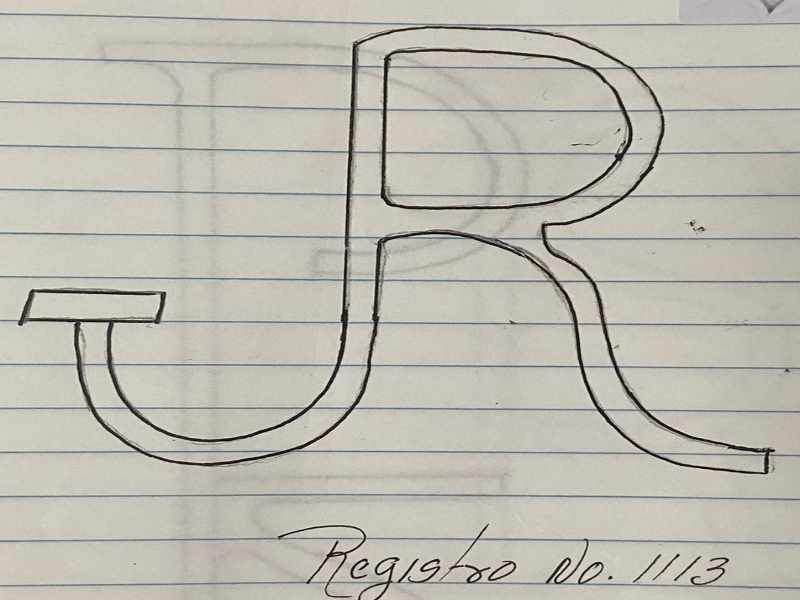 JR
Registro No. 1113